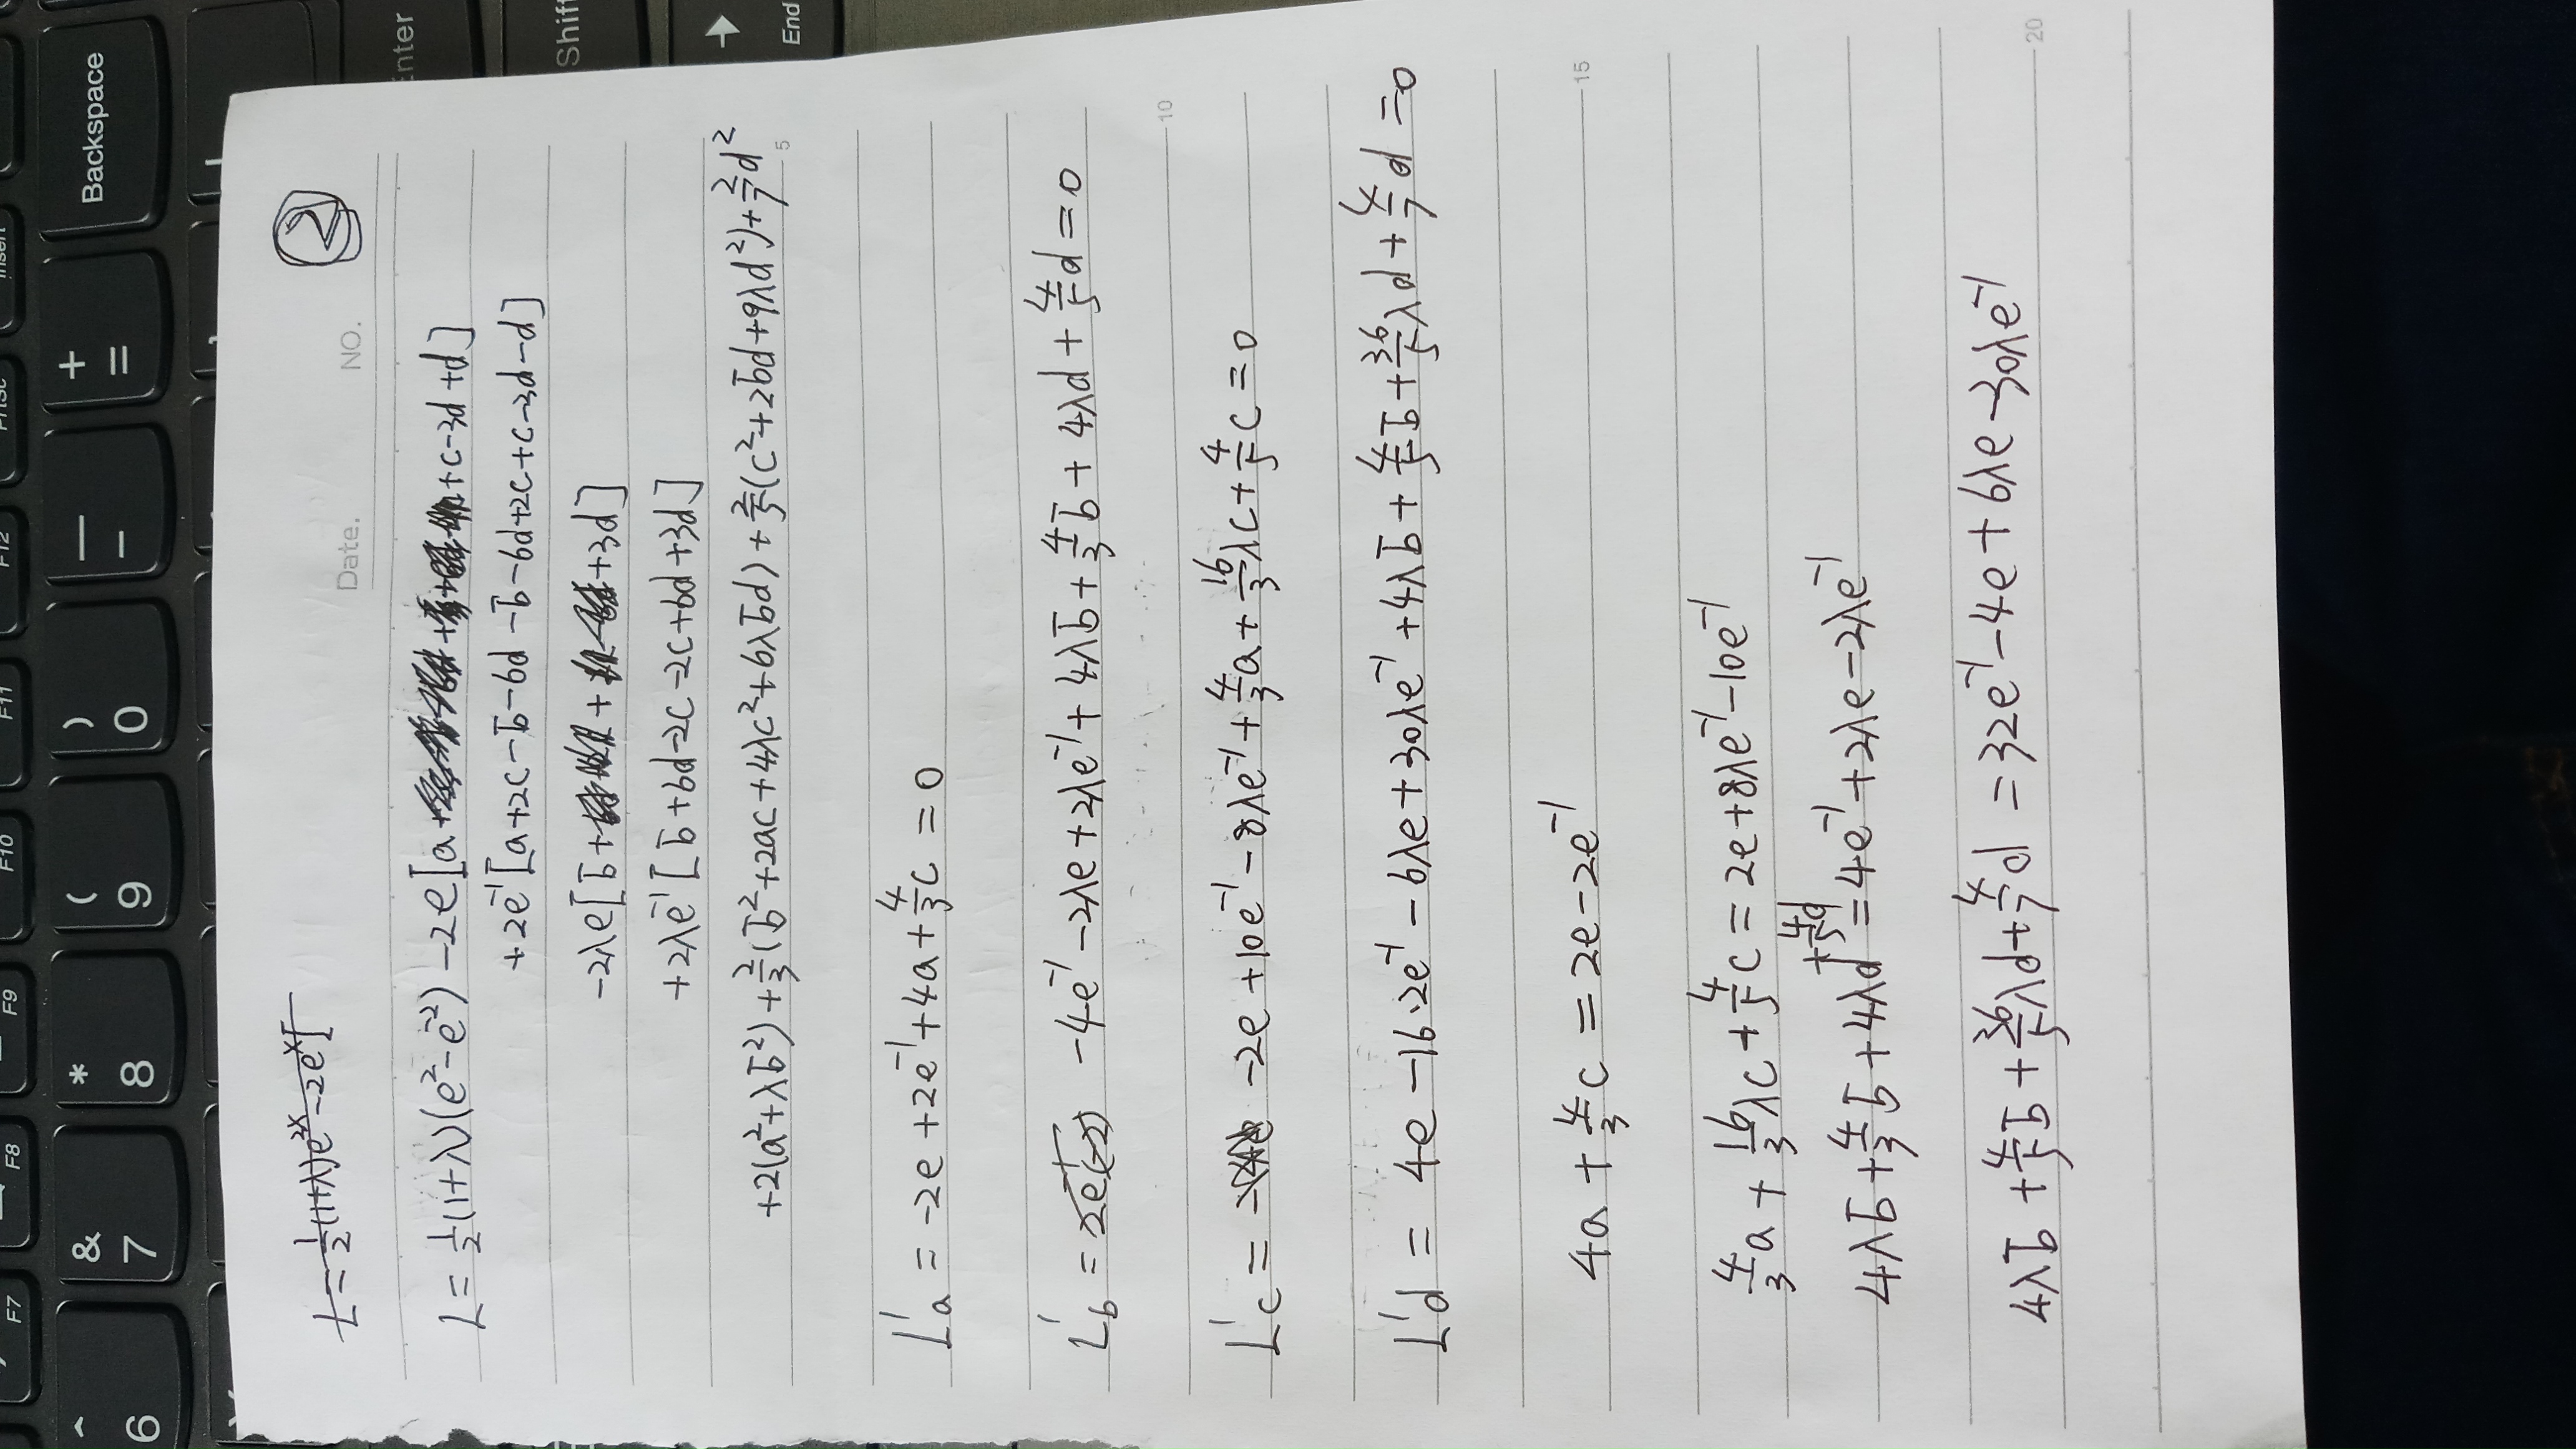 F7 F8 F9 F10 F11 F12 PrtSc Insert
^ & * ( ) — + Backspace
6 7 8 9 0 - =
Enter
Shift
End
L = ½(1+λ)e^{2x} - 2e^x[
②
Date. NO.
L = ½(1+λ)(e² - e⁻²) - 2e[a + c - 3d + d]
+ 2e⁻¹[a + 2c - b - 6d - b - 6d + 2c + c - 3d - d]
- 2λe[b + + + 3d]
+ 2λe⁻¹[b + 6d - 2c - 2c + 6d + 3d]
+ 2(a² + λb²) + 2/3(b² + 2ac + 4λc² + 6λbd) + 2/5(c² + 2bd + 9λd²) + 2/7 d²
5
L'a = -2e + 2e⁻¹ + 4a + 4/3 c = 0
L'b = -4e⁻¹ - 2λe + 2λe⁻¹ + 4λb + 4/3 b + 4λd + 4/5 d = 0
10
L'c = -2e + 10e⁻¹ - 8λe⁻¹ + 4/3 a + 16/3 λc + 4/5 c = 0
L'd = 4e - 16·2e⁻¹ - 6λe + 30λe⁻¹ + 4λb + 4/5 b + 36/5 λd + 4/7 d = 0
4a + 4/3 c = 2e - 2e⁻¹
15
4/3 a + 16/3 λc + 4/5 c = 2e + 8λe⁻¹ - 10e⁻¹
4λb + 4/3 b + 4λd + 4/5 d = 4e⁻¹ + 2λe - 2λe⁻¹
4λb + 4/5 b + 36/5 λd + 4/7 d = 32e⁻¹ - 4e + 6λe - 30λe⁻¹
20